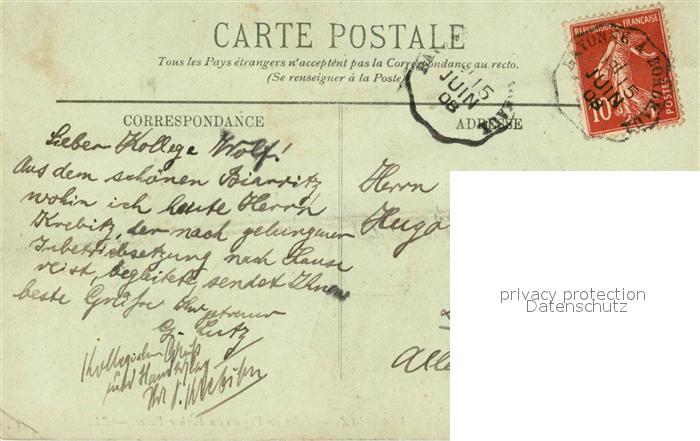 CARTE POSTALE
Tous les Pays étrangers n'acceptent pas la Correspondance au recto.
(Se renseigner à la Poste)
15
JUIN
08
RÉPUBLIQUE FRANÇAISE
BAYONNE A BORDEAUX
15
JUIN
08
10
POSTES
CORRESPONDANCE
ADRESSE
Lieber Kollege Wolf!
Aus dem schönen Biarritz
wohin ich heute Herrn
Krebitz, der nach gelungener
Inbetriebsetzung nach Hause
reist, begleitete, sendet Ihnen
beste Grüße Ihr getreuer
G. Lutz
Kollegialen Gruß
und Handschlag
Ihr
Herrn
Hugo
Alle
privacy protection
Datenschutz